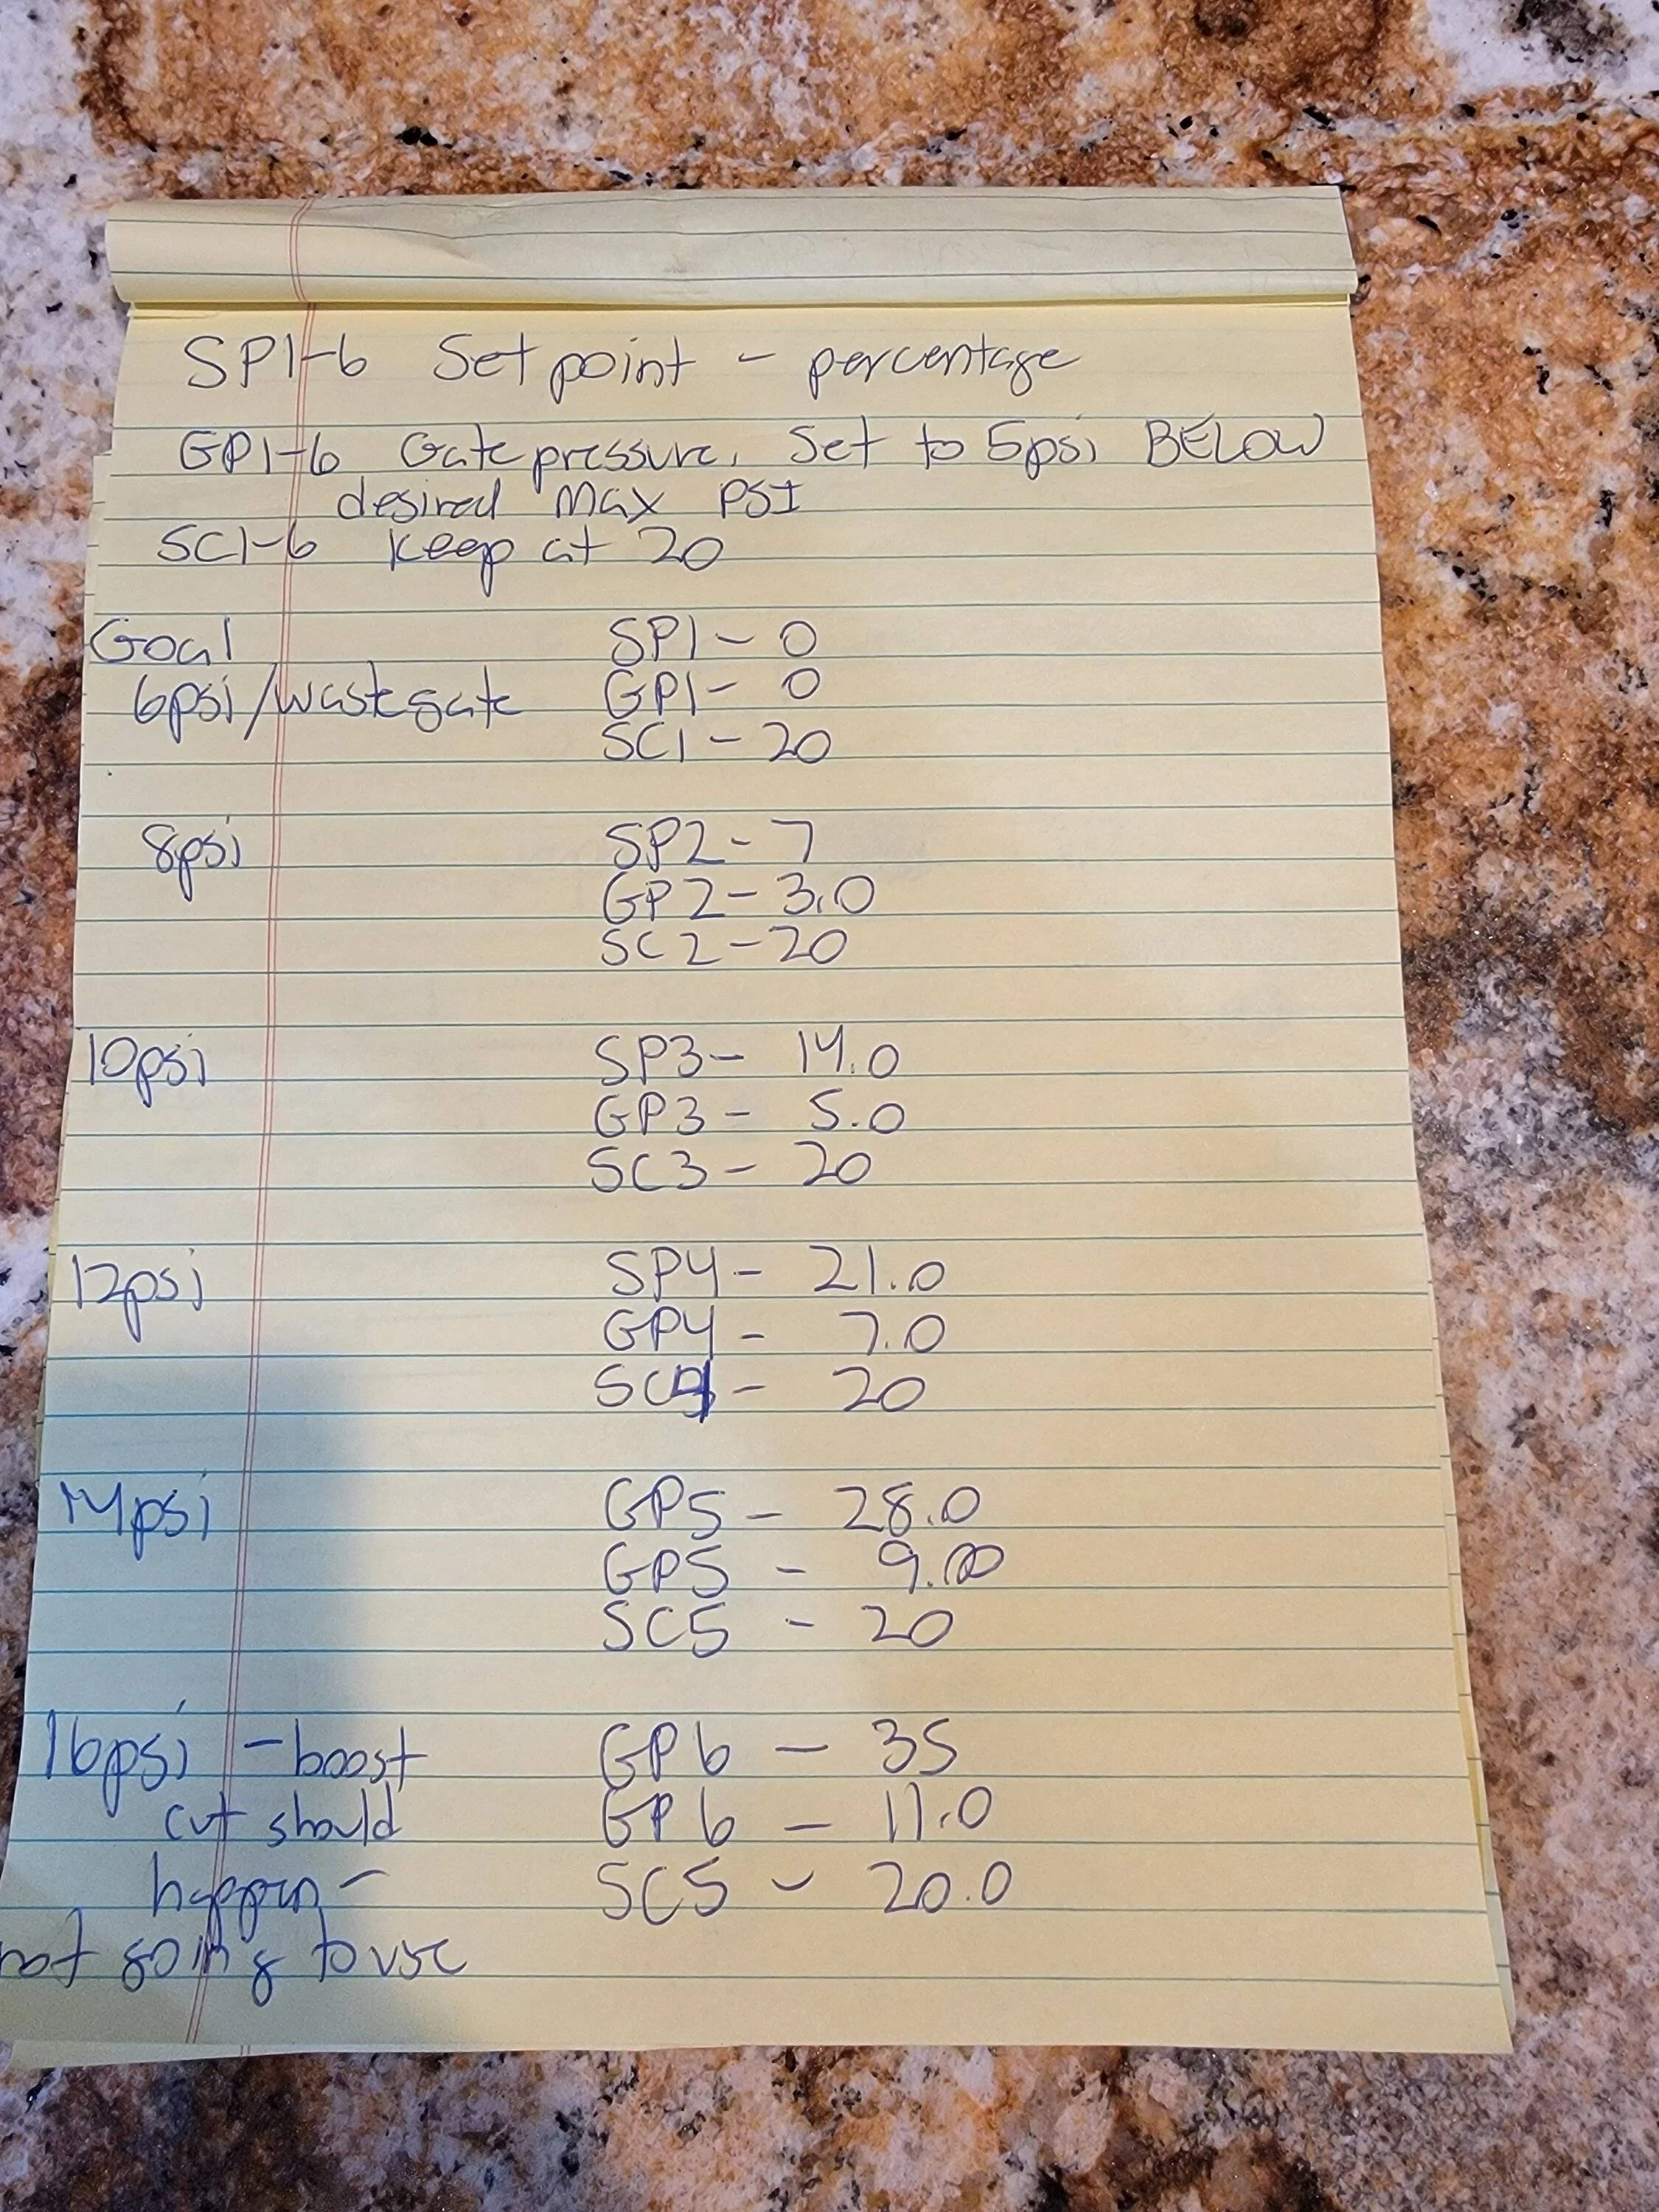 SP1-6 Set point - percentage
GP1-6 Gate pressure. Set to 5psi BELOW
desired Max PSI
SC1-6 keep at 20
Goal SP1 - 0
6psi/wastegate GP1 - 0
SC1 - 20
8psi SP2 - 7
GP2 - 3.0
SC2 - 20
10psi SP3 - 14.0
GP3 - 5.0
SC3 - 20
12psi SP4 - 21.0
GP4 - 7.0
SC4 - 20
14psi GP5 - 28.0
GP5 - 9.00
SC5 - 20
16psi - boost GP6 - 35
cut should GP6 - 11.0
happen - SC5 - 20.0
not going to use